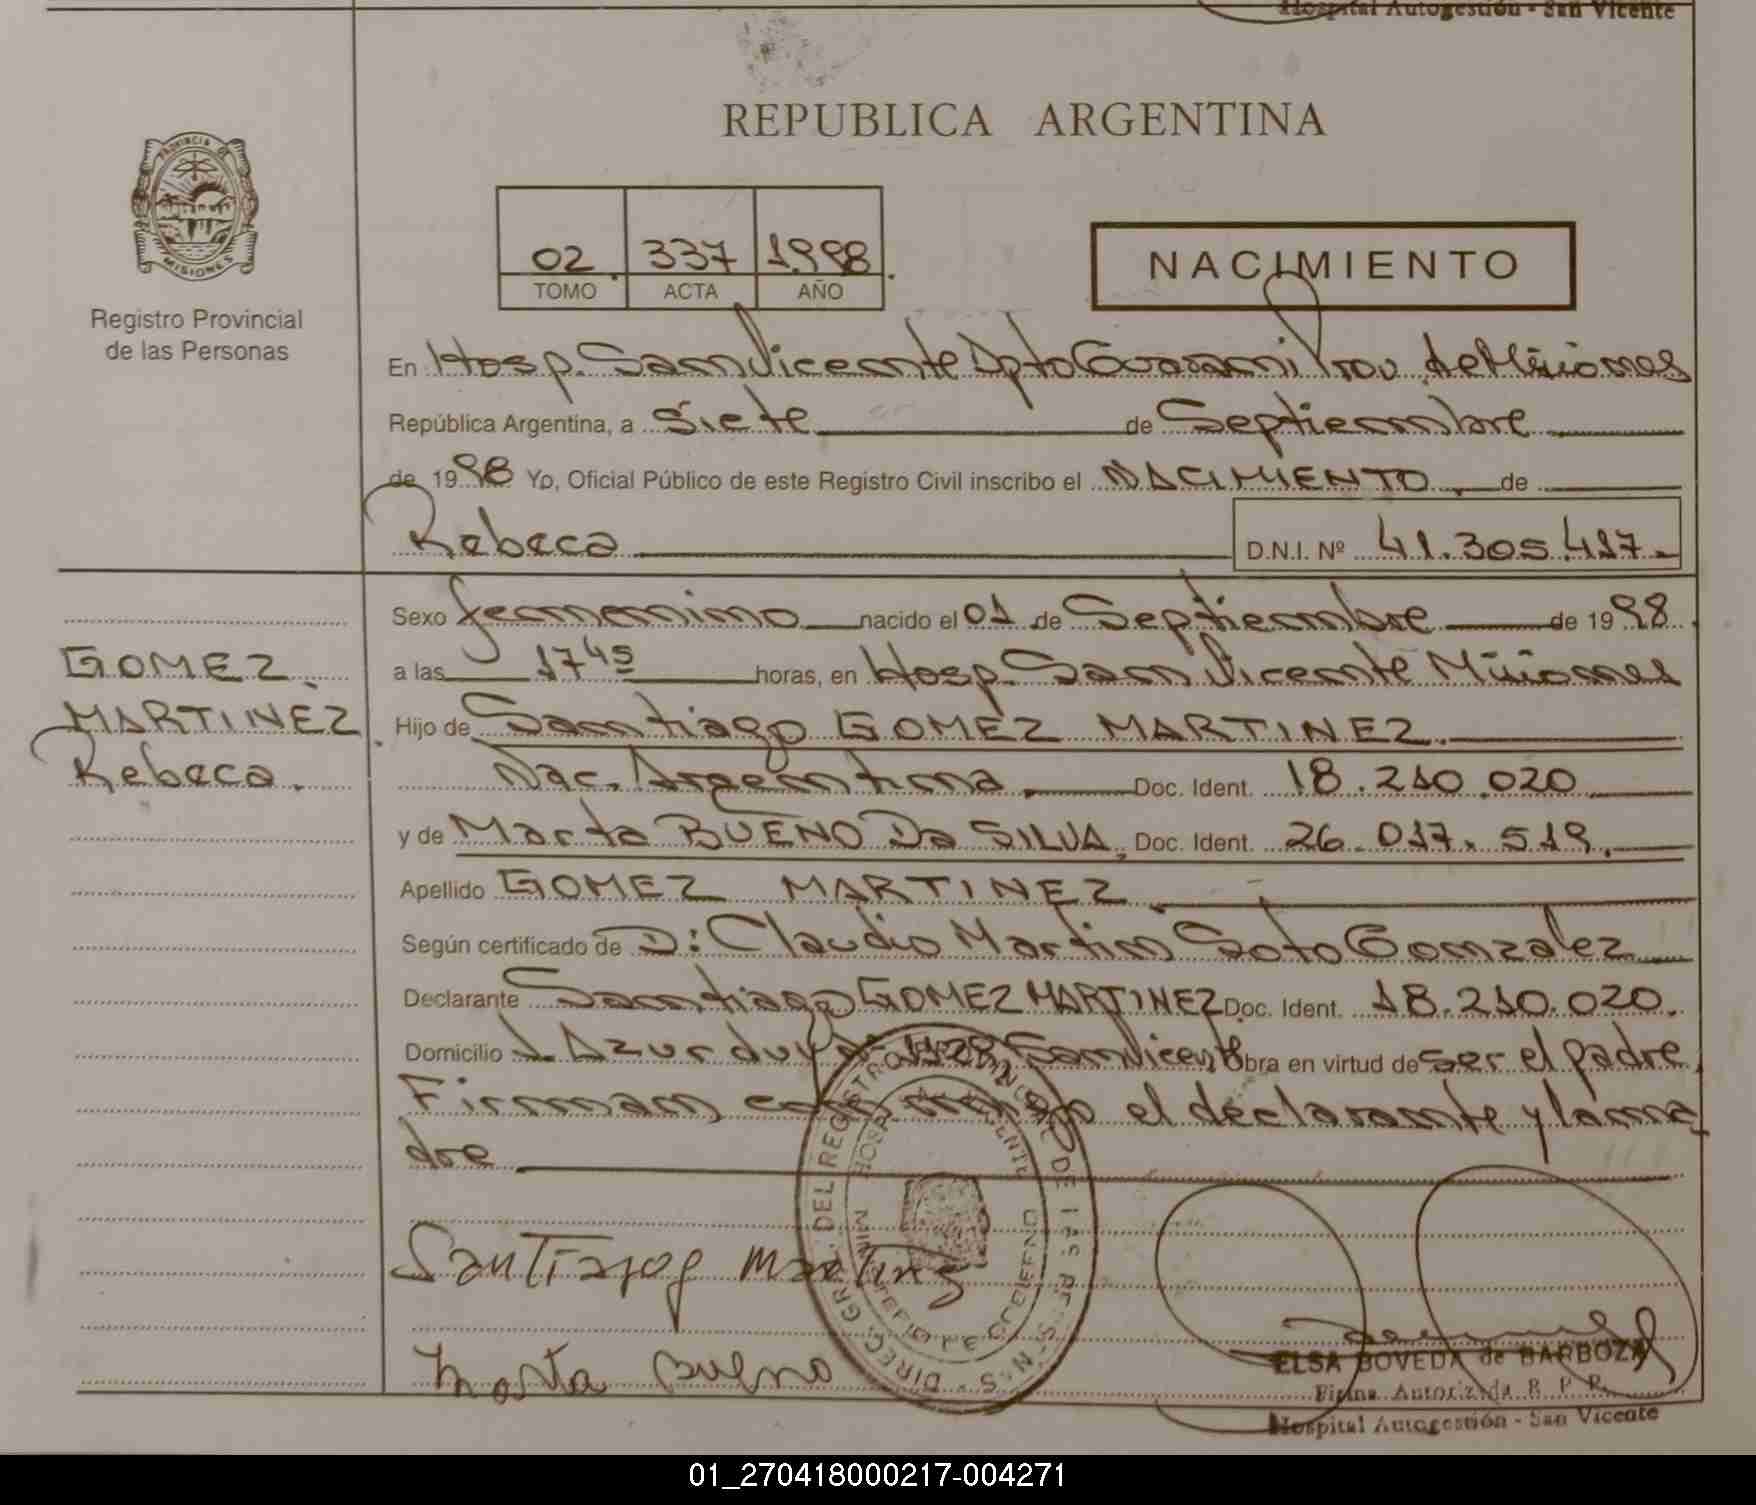 Hospital Autogestión - San Vicente
REPUBLICA ARGENTINA
PROVINCIA DE
MISIONES
Registro Provincial
de las Personas
02 337 1998
TOMO ACTA AÑO
NACIMIENTO
En Hosp. San Vicente Dpto Guarani Prov. de Misiones
República Argentina, a siete de Septiembre
de 1998 Yo, Oficial Público de este Registro Civil inscribo el NACIMIENTO de
Rebeca D.N.I. Nº 41.305.417.
Sexo femenino nacido el 01 de Septiembre de 1998
a las 17 45 horas, en Hosp. San Vicente Misiones
GOMEZ
MARTINEZ
Rebeca.
Hijo de Santiago GOMEZ MARTINEZ.
Nac. Argentina. Doc. Ident. 18.210.020
y de Marta BUENO Da SILVA, Doc. Ident. 26.017.519.
Apellido GOMEZ MARTINEZ
Según certificado de D: Claudio Martin Soto Gonzalez
Declarante Santiago GOMEZ MARTINEZ Doc. Ident. 18.210.020.
Domicilio J. Azurduy San Vicente Obra en virtud de ser el padre,
Firman el declarante y la ma
dre
Santiago g Martinez
Marta Bueno
DIREC. GRAL. DEL REGISTRO PROVINCIAL DE LAS PERSONAS
HOSP. SAN VICENTE
MINISTERIO DE GOBIERNO
ELSA BOVEDA de BARBOZA
Firma Autorizada R. P. P.
Hospital Autogestión - San Vicente
01_270418000217-004271